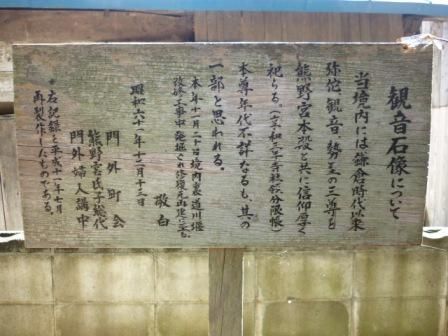 観音石像について
当境内には鎌倉時代以来
弥陀、観音、勢至の三尊を
熊野宮本殿と共に信仰厚く
祀らる。(文和三年寺社領分限帳
本尊年代不詳なるも、其の
一部と思われる。
本年十一月二十日境内裏、道川堰
改修工事中発掘され修復再建
敬白
昭和六十一年十二月十二日
門外町会
熊野宮氏子総代
門外婦人講中
*右記録を平成十一年七月
再製作したものである。